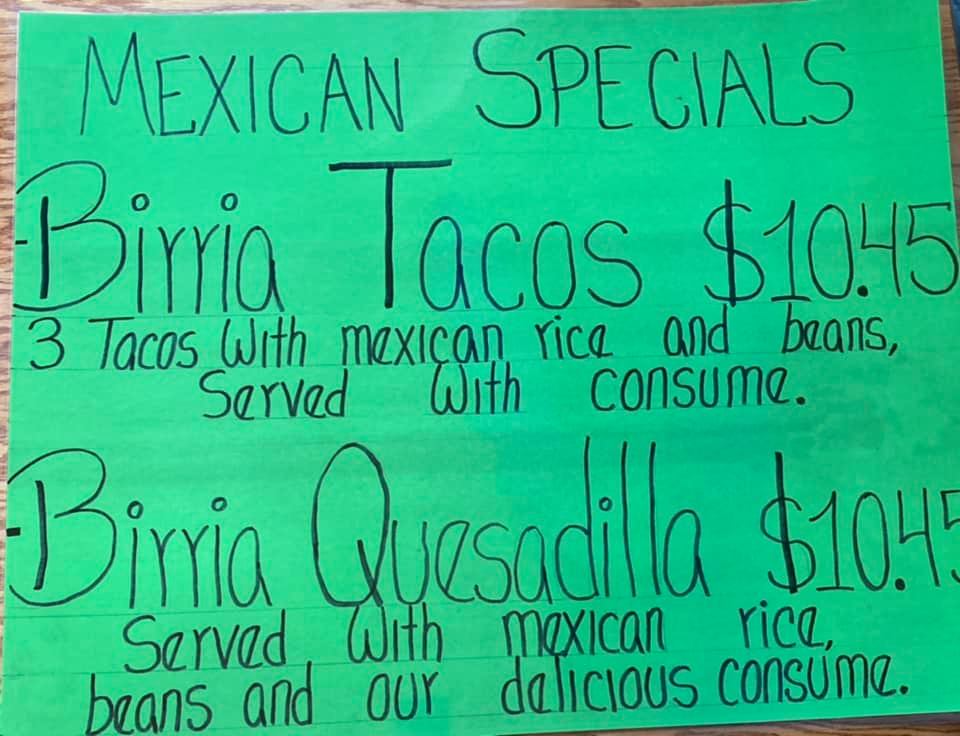 MEXICAN SPECIALS
-Birria Tacos $10.45
3 Tacos With mexican rice and beans,
Served With consume.
-Birria Quesadilla $10.45
Served With mexican rice,
beans and our delicious consume.